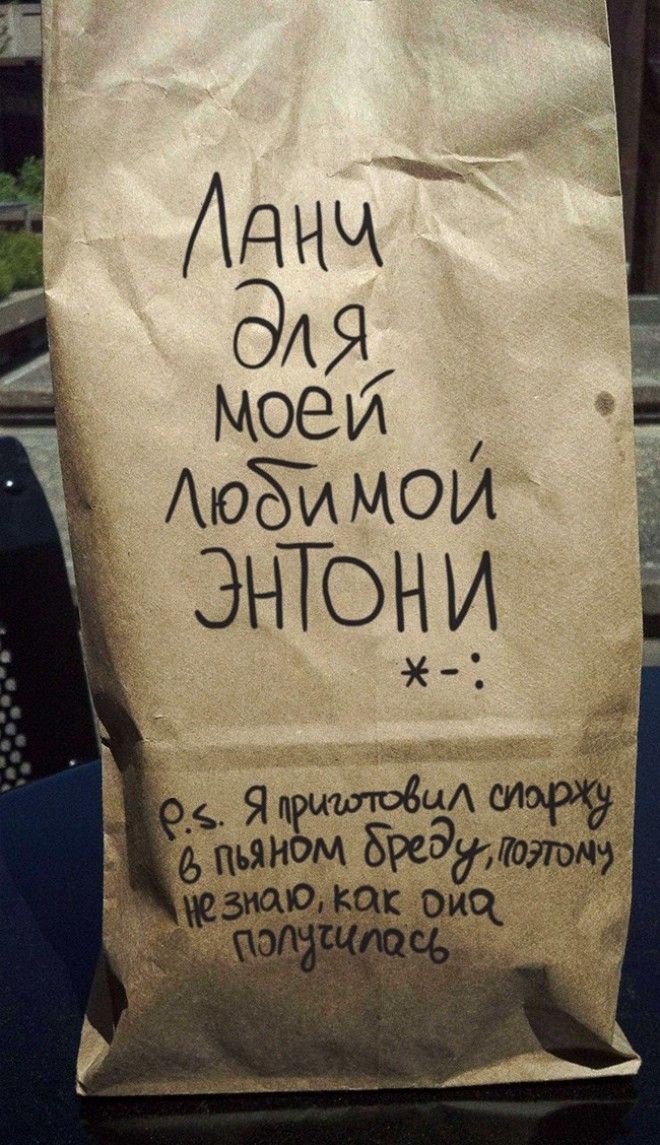 Ланч
для
моей
любимой
Энтони
*-:
P.S. Я приготовил спаржу
в пьяном бреду, поэтому
не знаю, как она
получилась